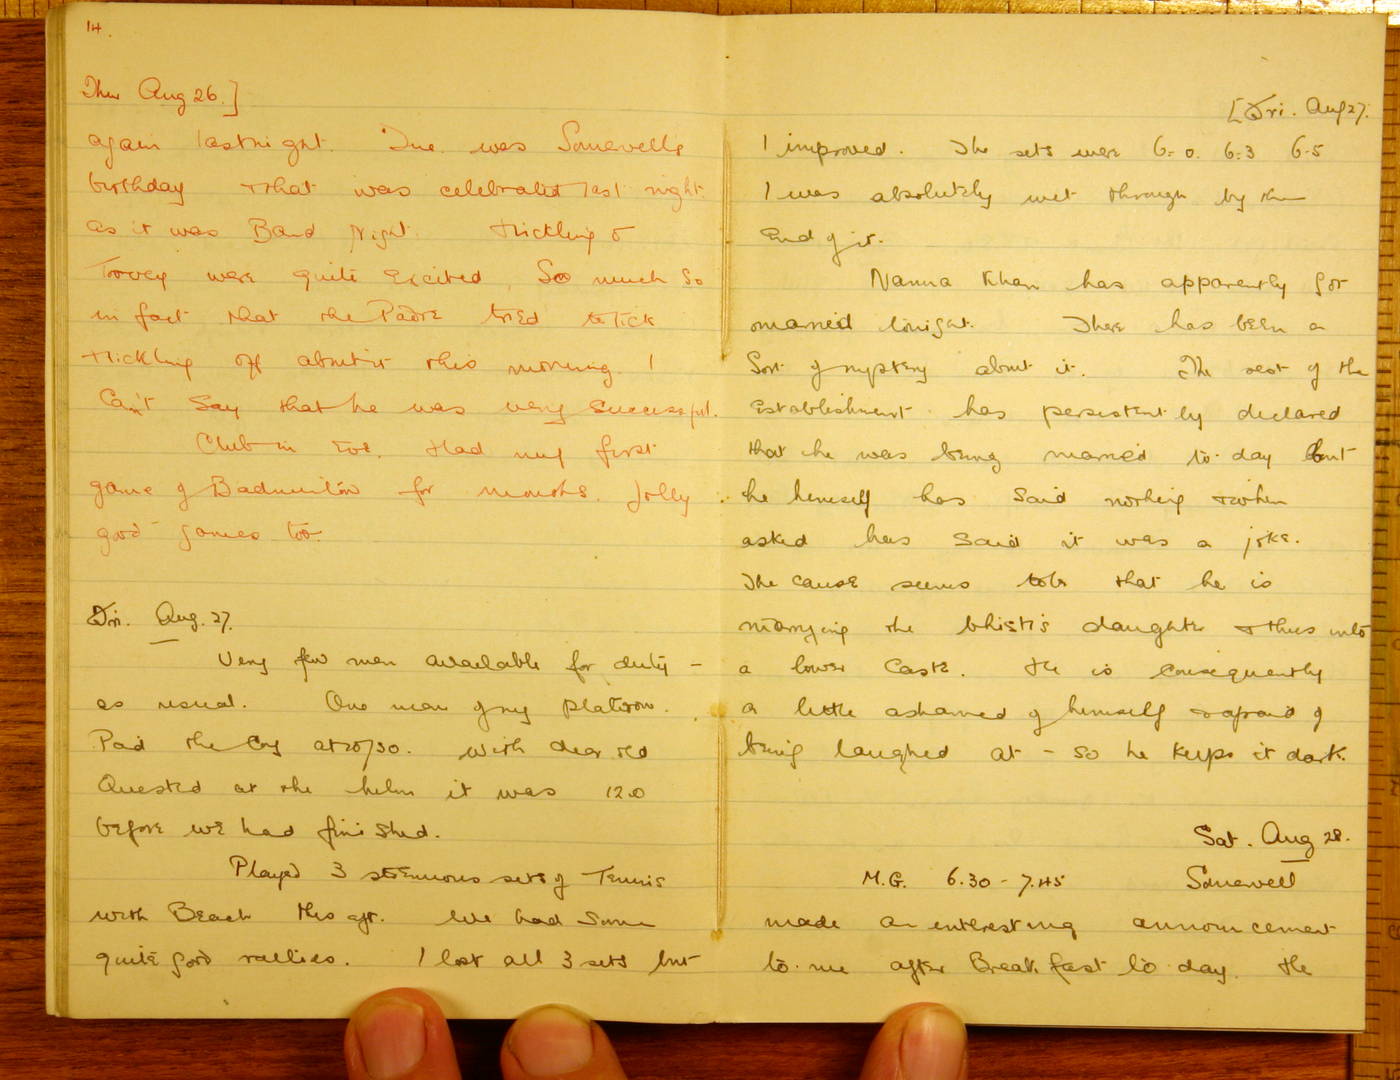 14.
Thur Aug 26.]
again last night. Tue. was Somervells
birthday & that was celebrated last night.
as it was Band Night. Hickling &
Tovey were quite excited, So much so
in fact that the Padre tried to tick
Hickling off about it this morning. I
Can't Say that he was very successful.
Club in Eve. Had my first
game of Badminton for months. Jolly
good games too.
Fri. Aug. 27.
Very few men available for duty -
as usual. One man of my platoon.
Paid the Coy at 10/30. With dear old
Quested at the helm it was 12.0
before we had finished.
Played 3 strenuous sets of Tennis
with Beach this aft. We had some
quite good rallies. I lost all 3 sets but
[Fri. Aug 27.
I improved. The sets were 6-0. 6-3 6-5
I was absolutely wet through by the
End of it.
Nanna Khan has apparently got
married tonight. There has been a
Sort of mystery about it. The rest of the
Establishment has persistently declared
that he was being married to-day but
he himself has said nothing & when
asked has said it was a joke.
The cause seems to be that he is
marrying the bhisti's daughter & thus into
a lower Caste. He is consequently
a little ashamed of himself & afraid of
being laughed at - so he keeps it dark.
Sat. Aug 28.
M.G. 6.30 - 7.45 Somervell
made an interesting announcement
to me after Breakfast to-day. He